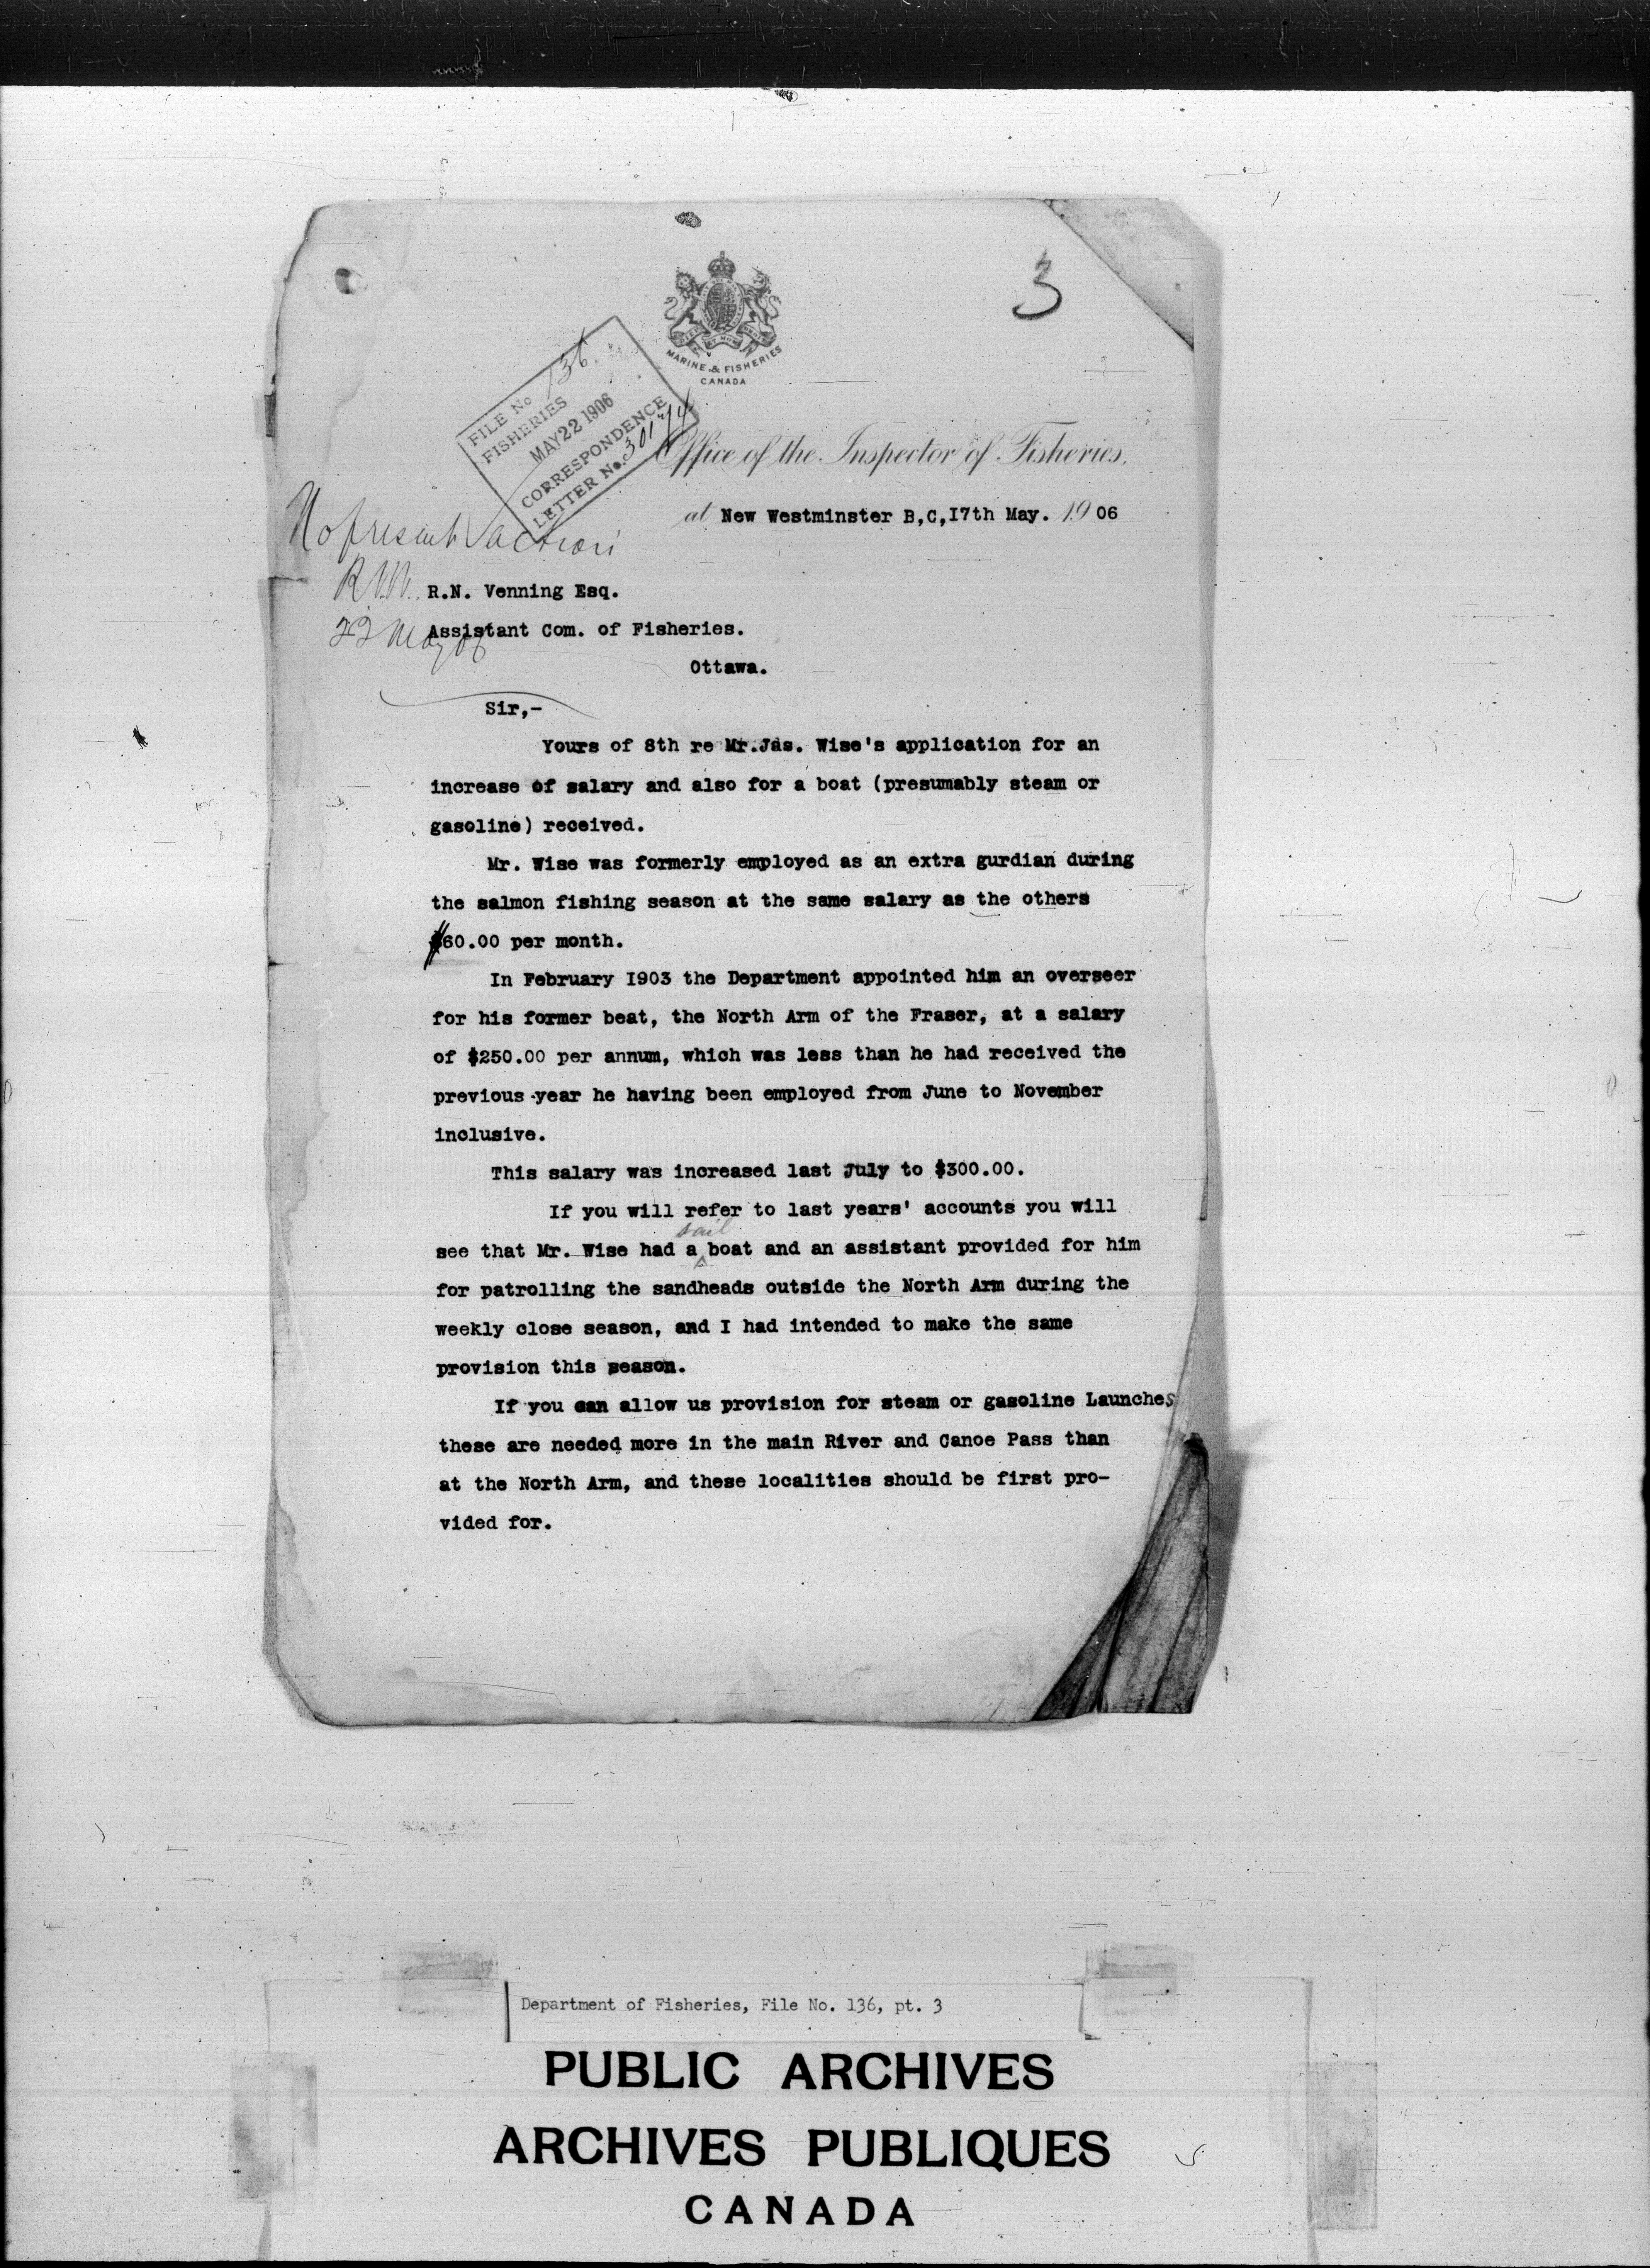 3
MARINE & FISHERIES
CANADA
FILE No 136.
FISHERIES
MAY 22 1906
CORRESPONDENCE
LETTER No.
Office of the Inspector of Fisheries,
at New Westminster B,C,I7th May. 1906
No present action
R.N.V.
22 May 06
R.N. Venning Esq.
Assistant Com. of Fisheries.
Ottawa.
Sir,-
Yours of 8th re Mr.Jas. Wise's application for an
increase of salary and also for a boat (presumably steam or
gasoline) received.
Mr. Wise was formerly employed as an extra gurdian during
the salmon fishing season at the same salary as the others
$60.00 per month.
In February I903 the Department appointed him an overseer
for his former beat, the North Arm of the Fraser, at a salary
of $250.00 per annum, which was less than he had received the
previous year he having been employed from June to November
inclusive.
This salary was increased last July to $300.00.
If you will refer to last years' accounts you will
see that Mr. Wise had a sail boat and an assistant provided for him
for patrolling the sandheads outside the North Arm during the
weekly close season, and I had intended to make the same
provision this season.
If you can allow us provision for steam or gasoline Launches
these are needed more in the main River and Canoe Pass than
at the North Arm, and these localities should be first pro-
vided for.
Department of Fisheries, File No. 136, pt. 3
PUBLIC ARCHIVES
ARCHIVES PUBLIQUES
CANADA